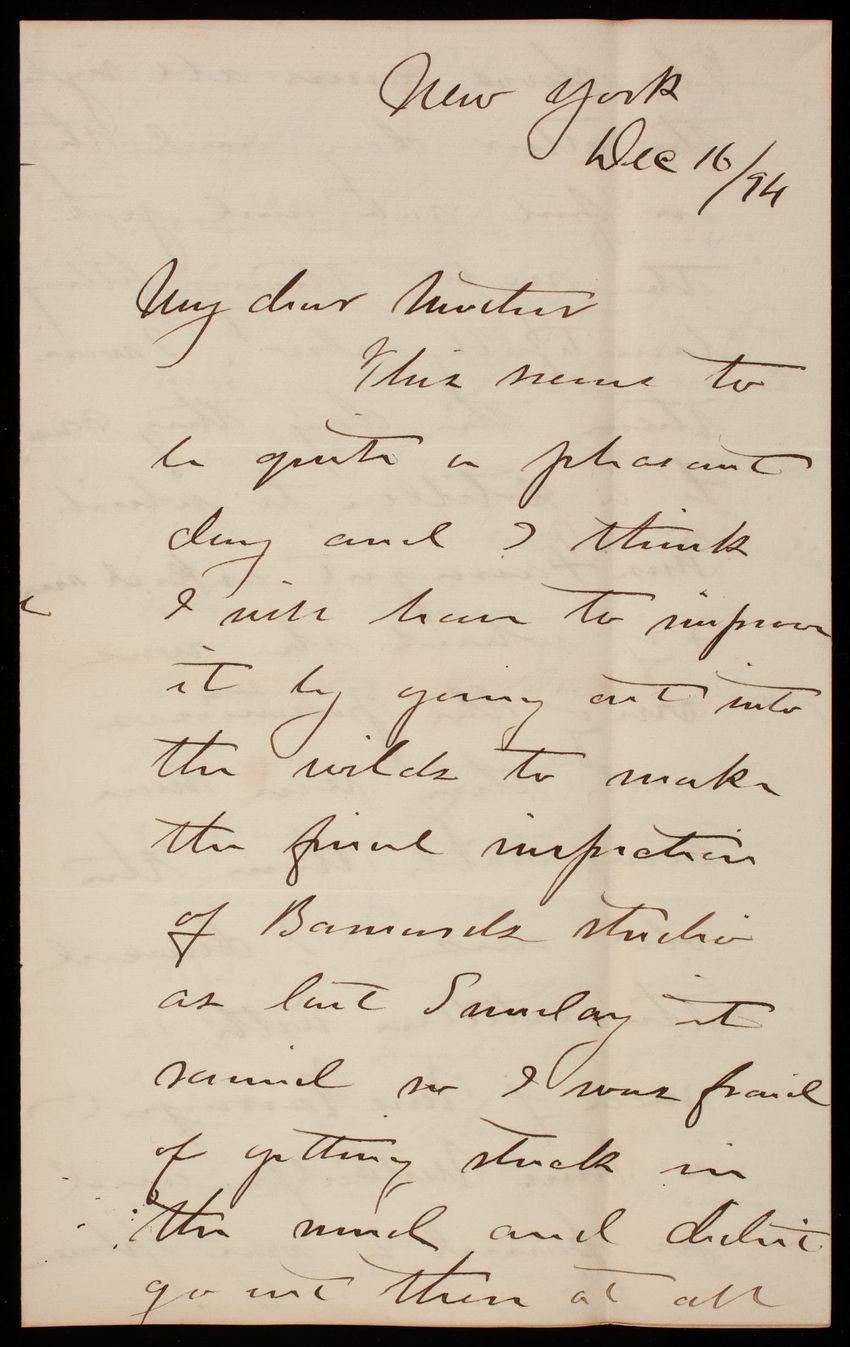 New York
Dec 16/94
My dear Mother
This seems to
be quite a pleasant
day and I think
I will have to improve
it by going out into
the wilds to make
the final inspection
of Barnards studio
as last Sunday it
rained so I was fraid
of getting stuck in
the mud and didnt
go out there at all